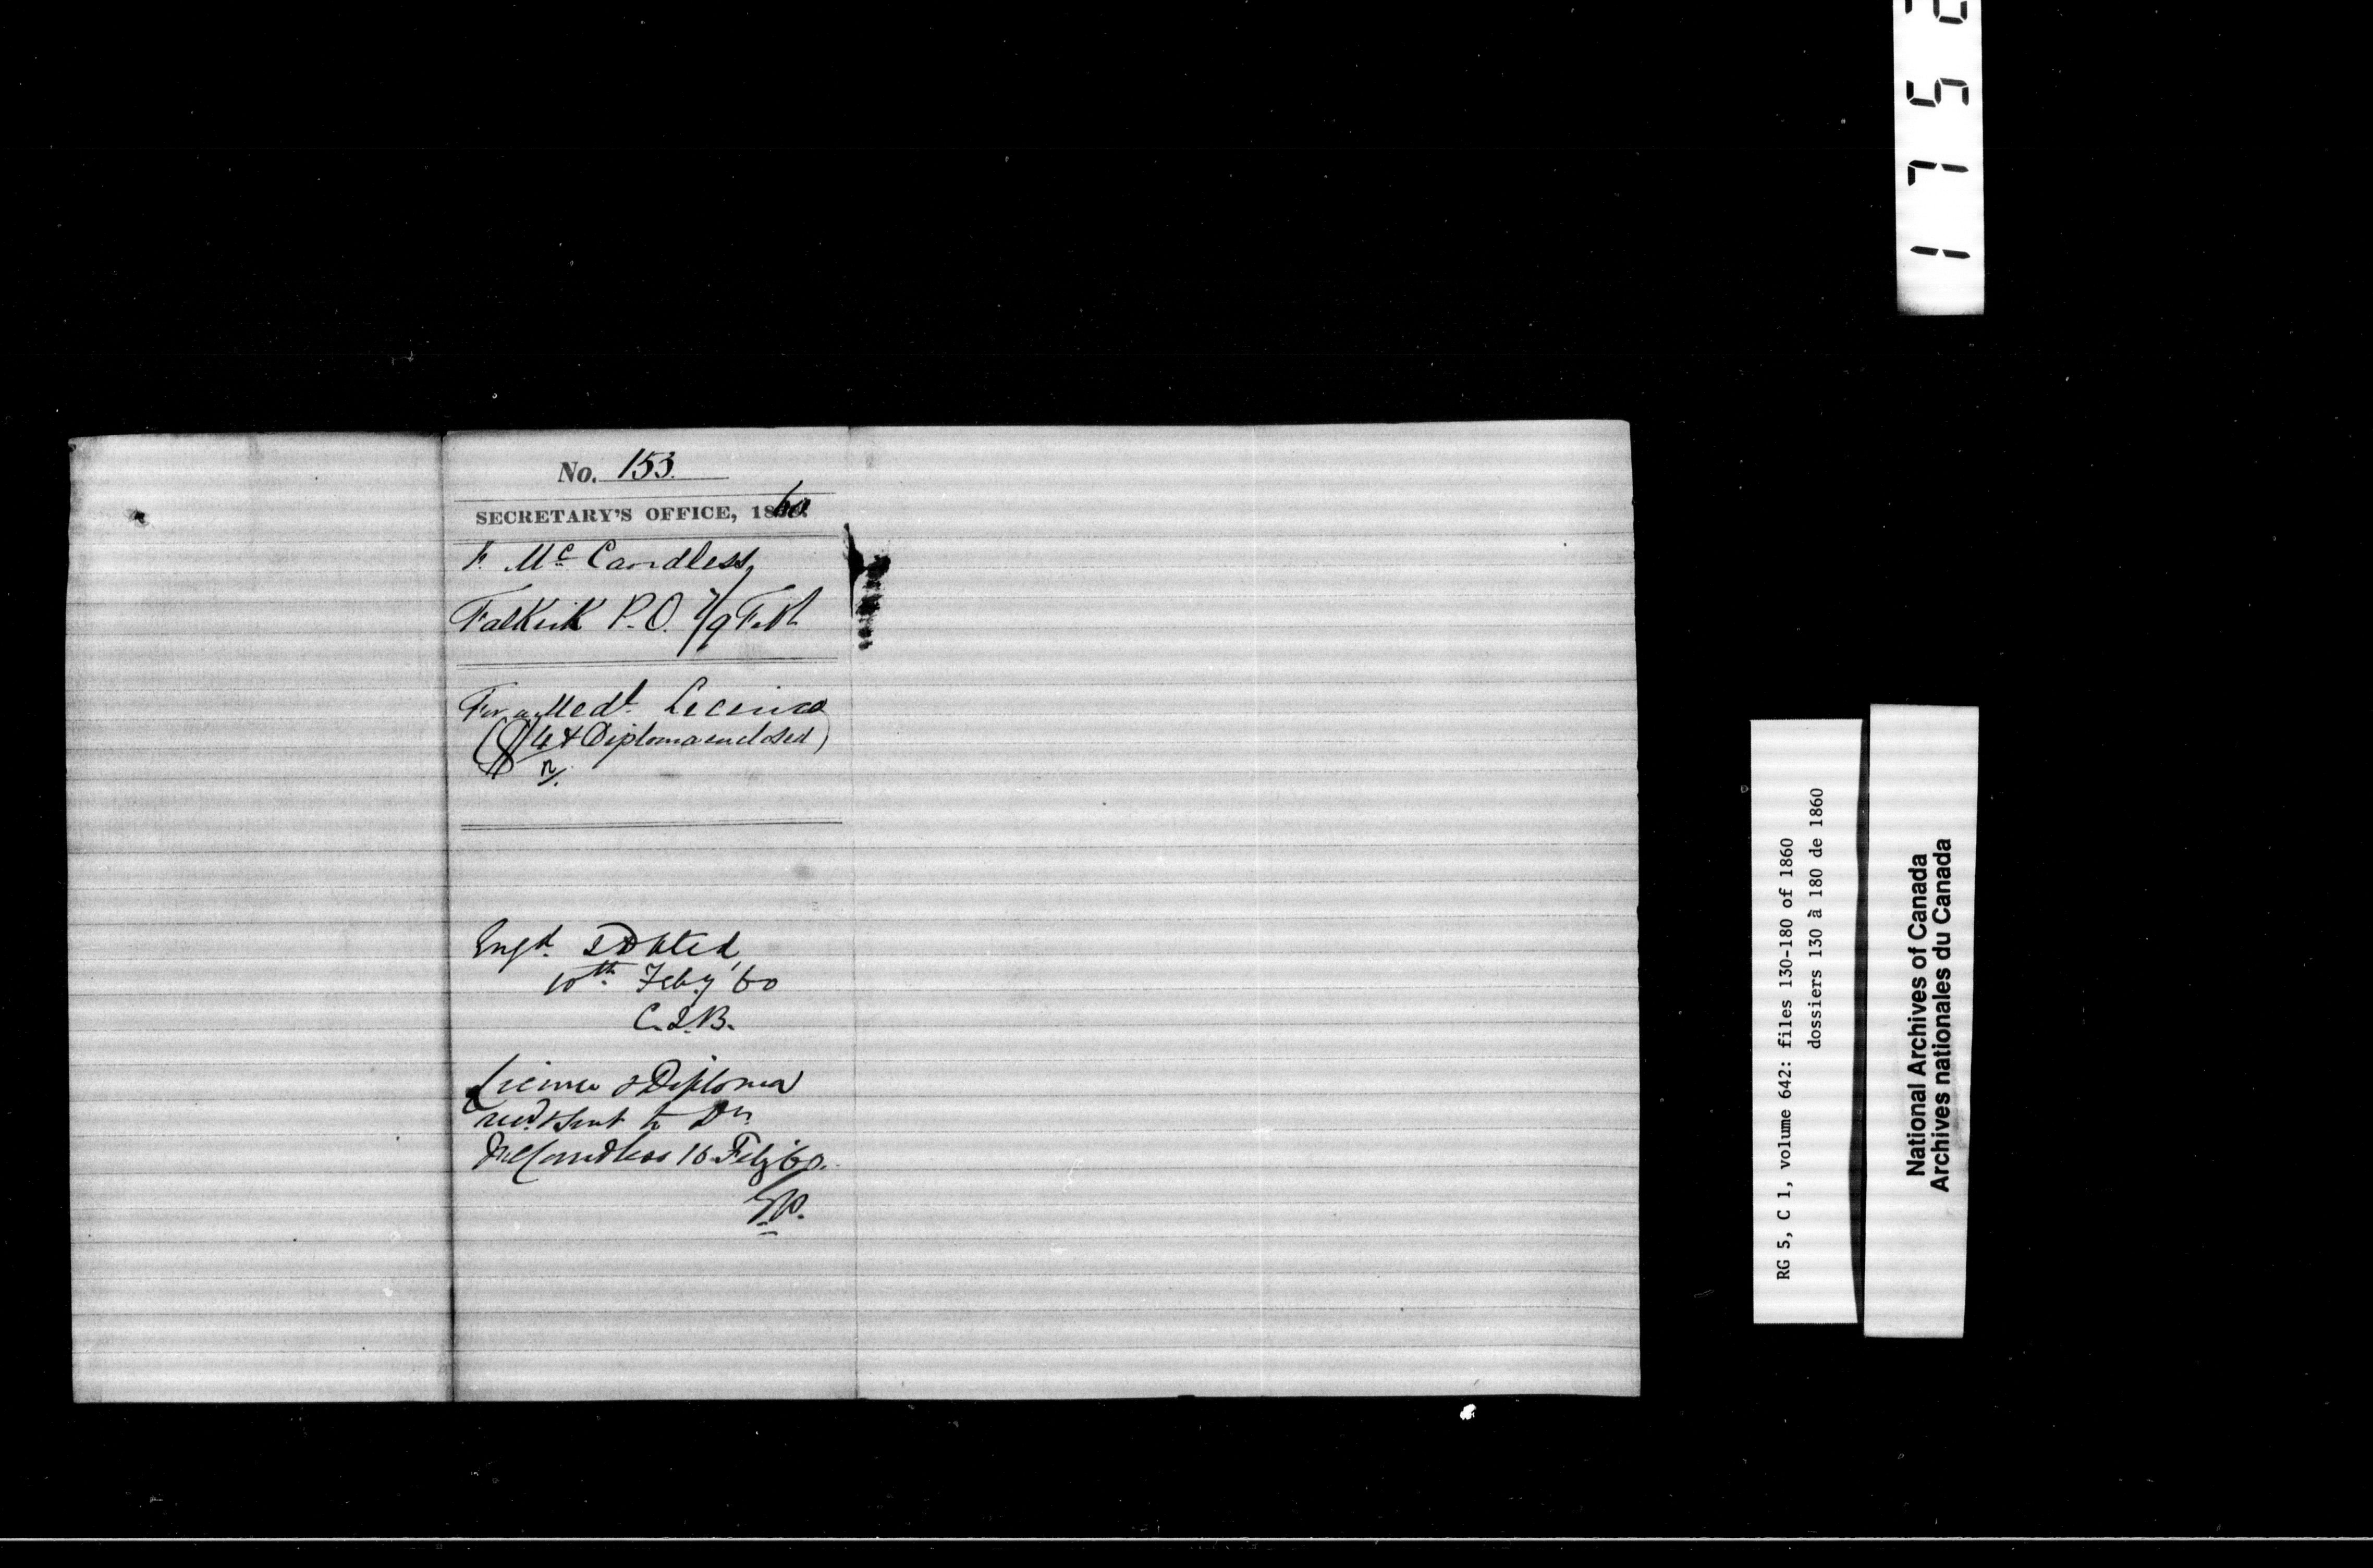 No. 153.
SECRETARY'S OFFICE, 1860
F. Mc Candless,
Falkirk P.O. 7/9 Feb
For a Medl. Licence
($4 & Diploma enclosed)
Engd. & Dated,
10th. Feby '60
C.J.B.
Licence & Diploma
recd & sent to Dr.
McCandless 16 Feby '60.
1752
RG 5, C 1, volume 642: files 130-180 of 1860
dossiers 130 à 180 de 1860
National Archives of Canada
Archives nationales du Canada